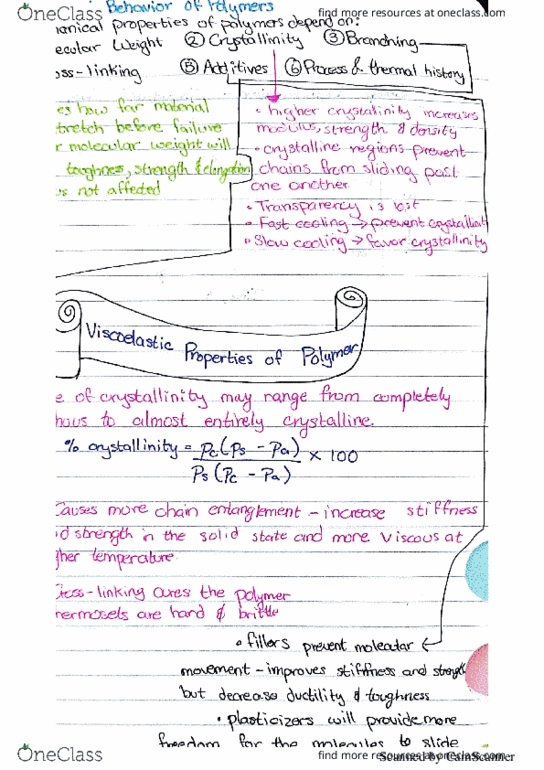 OneClass
find more resources at oneclass.com
Behavior of Polymers
anical properties of polymers depend on:
ecular Weight ② Crystallinity ③ Branching
oss-linking ⑤ Additives ⑥ Process & thermal history
es how far material
tretch before failure
r molecular weight will
toughness, strength & elongation
is not affected
• higher crystallinity increases
modulus, strength & density
• crystalline regions prevent
chains from sliding past
one another
• Transparency is lost
• Fast cooling → prevent crystallinit
• Slow cooling → favor crystallinity
Viscoelastic Properties of Polymer
e of crystallinity may range from completely
hous to almost entirely crystalline.
% crystallinity = ρc (ρs - ρa) × 100
ρs (ρc - ρa)
Causes more chain entanglement - increase stiffness
d strength in the solid state and more viscous at
gher temperature.
Cross-linking cures the polymer
hermosets are hard & brittle
• fillers prevent molecular
movement - improves stiffness and strength
but decrease ductility & toughness
• plasticizers will provide more
freedom for the molecules to slide
OneClass
find more resources at oneclass.com
Scanned by CamScanner